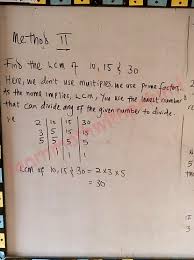 Method II
Find the LCM of 10, 15 & 30
Here, we don't use multiples, we use prime factors.
As the name implies, LCM, You use the lowest number
that can divide any of the given number to divide.
i.e
2 | 10 | 15 | 30
3 | 5 | 15 | 15
5 | 5 | 5 | 5
| 1 | 1 | 1
LCM of 10, 15 & 30 = 2 x 3 x 5
= 30